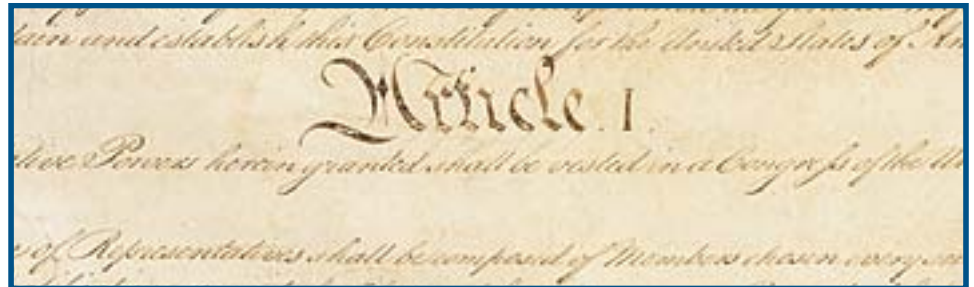 tain and establish this Constitution for the United States of Am
Article. I.
ative Powers herein granted shall be vested in a Congress of the Un
e of Representatives shall be composed of Members chosen every sec